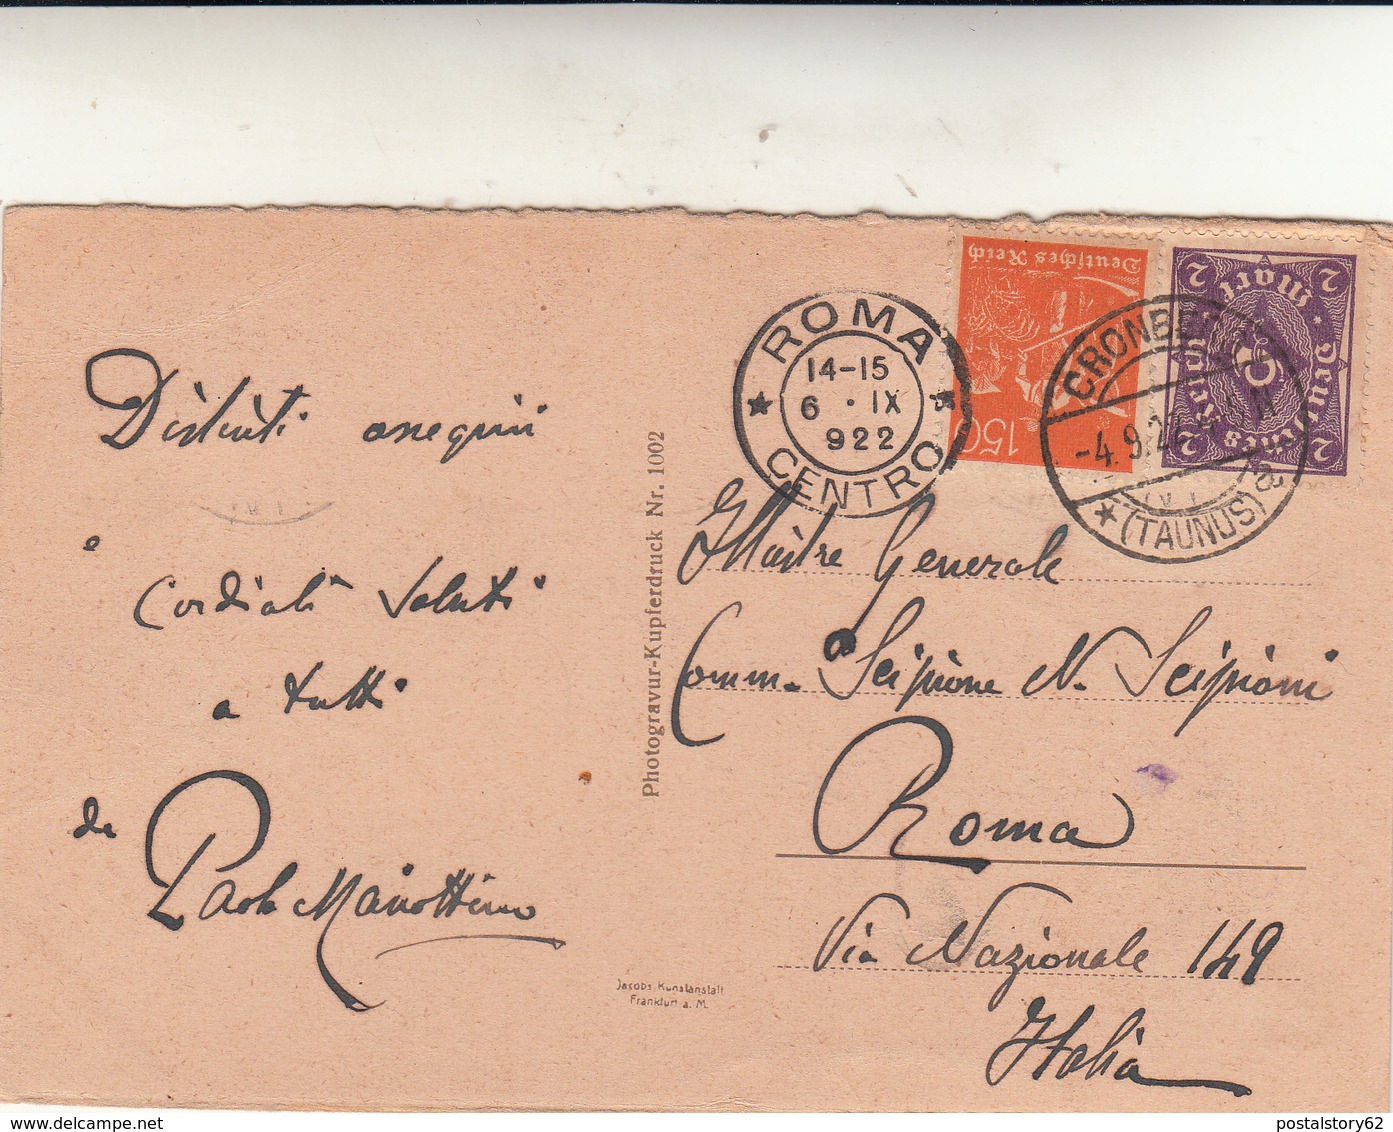 Distinti ossequi
e
Cordiali saluti
a tutti
da
Paolo
Photogravur-Kupferdruck Nr. 1002
Jacobs Kunstanstalt
Frankfurt a. M.
ROMA
14-15
6 · IX
922
CENTRO
Deutsches Reich
150
2 Mark 2
Deutsches Reich
2 2
CRONBERG
-4.9.22
(TAUNUS) a
Illustre Generale
Comm. Scipione N. Scipioni
Roma
Via Nazionale 149
Italia
postalstory62